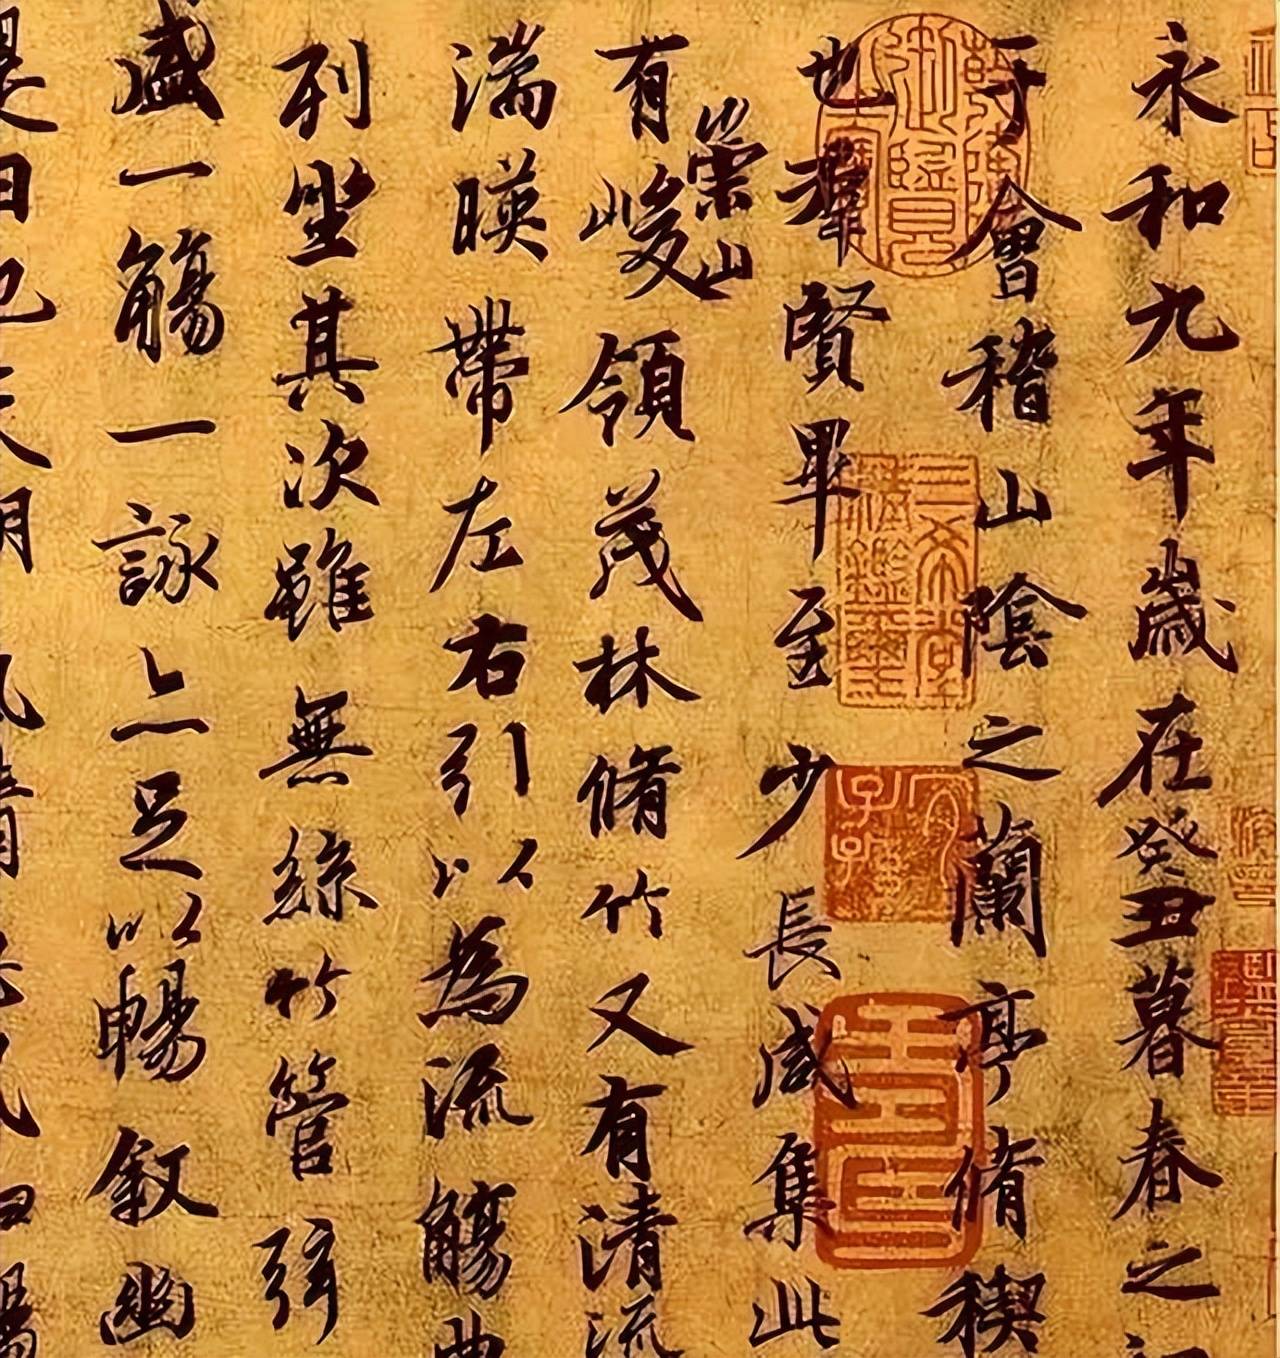 永和九年歲在癸丑暮春之初
于會稽山陰之蘭亭脩稧
也羣賢畢至少長咸集此
有崇山峻領茂林脩竹又有清流
湍暎帶左右引以為流觴曲
列坐其次雖無絲竹管弦
盛一觴一詠亦足以暢叙幽
是日也天朗